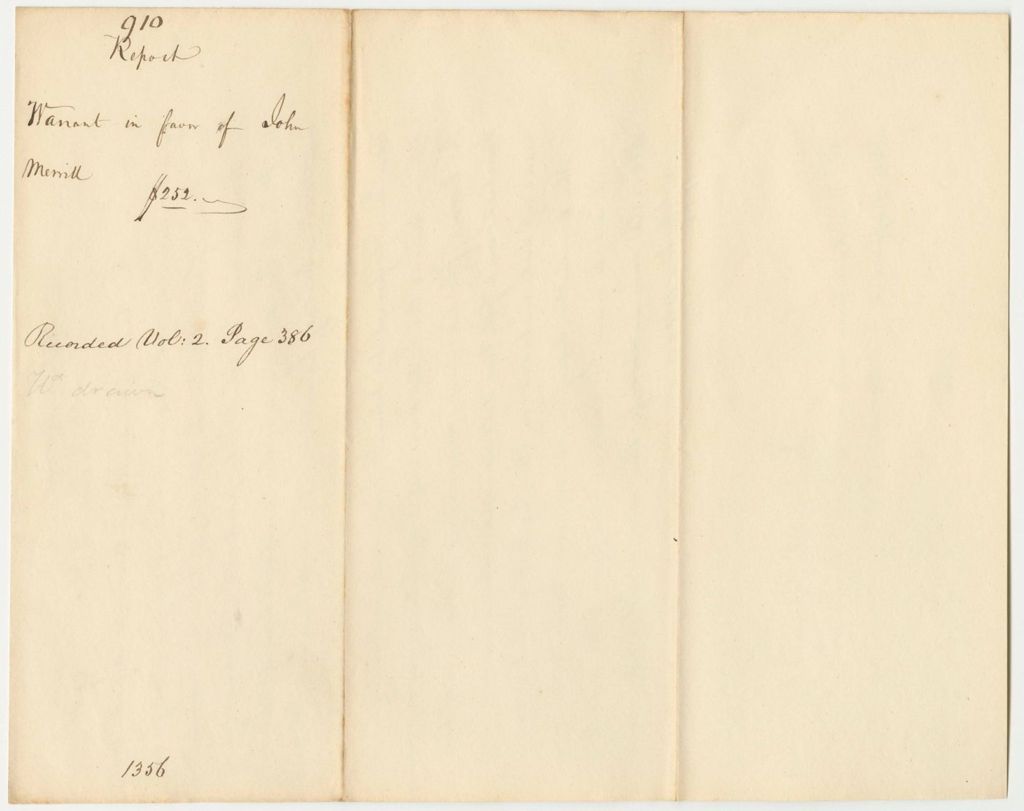 910
Report
Warrant in favor of John
Merrill
$252.
Recorded Vol: 2. Page 386
Wt drawn
1356